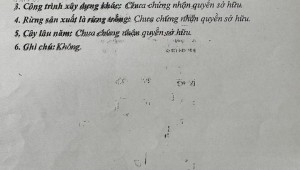 3. Công trình xây dựng khác: Chưa chứng nhận quyền sở hữu.
4. Rừng sản xuất là rừng trồng: Chưa chứng nhận quyền sở hữu.
5. Cây lâu năm: Chưa chứng nhận quyền sở hữu.
6. Ghi chú: Không.